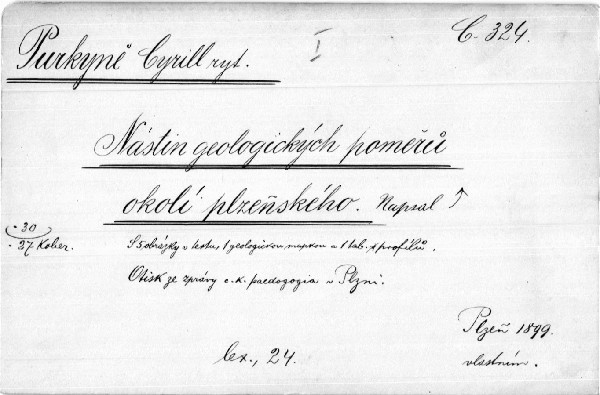 C. 324.
I
Purkyně Cyrill ryt.
Nástin geologických poměrů
okolí plzeňského. Napsal ↑
- 30
- 37 Kober.
S 5 obrázky v textu, 1 geologickou mapkou a 1 tab. profilů.
Otisk ze zprávy c. k. paedagogia v Plzni.
Plzeň 1899.
vlastním.
lex., 24.